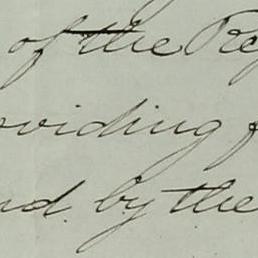 of the Re
oviding f
nd by the